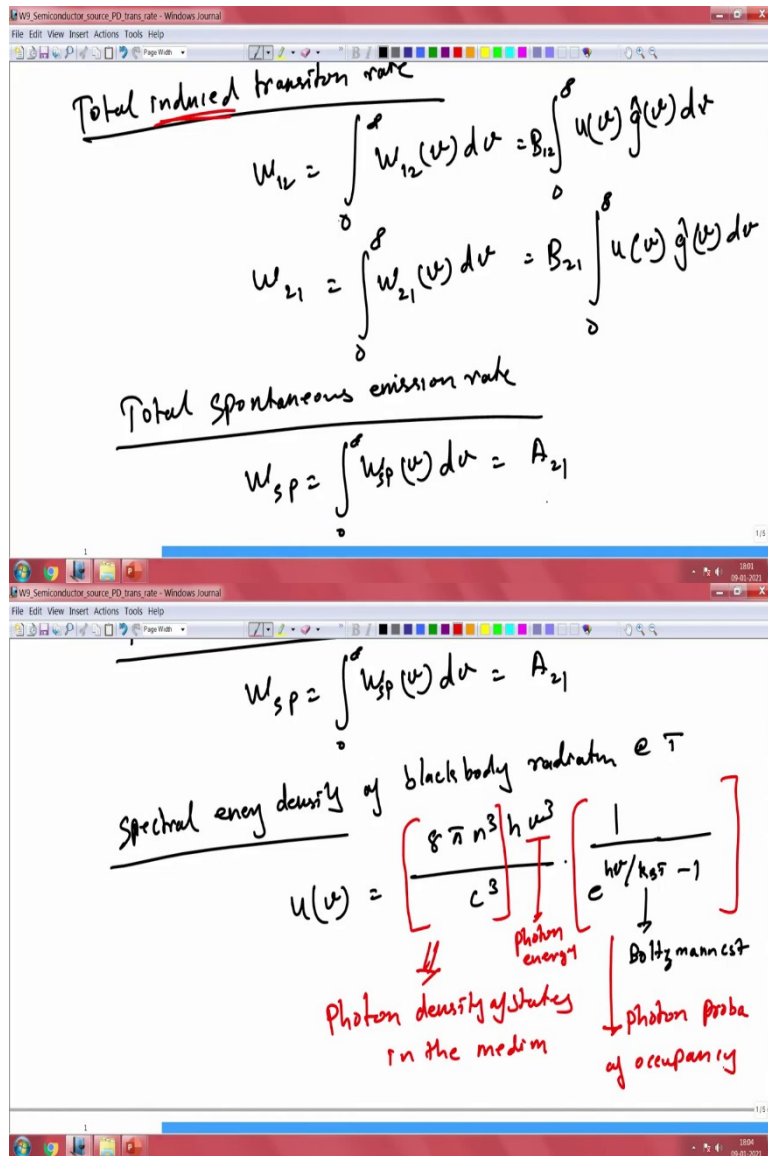 W9_Semiconductor_source_PD_trans_rate - Windows Journal
File Edit View Insert Actions Tools Help
Page Width
Total induced transiton rate
W₁₂ = ∫₀^∞ W₁₂(ν) dν = B₁₂ ∫₀^∞ u(ν) ĝ(ν) dν
W₂₁ = ∫₀^∞ W₂₁(ν) dν = B₂₁ ∫₀^∞ u(ν) ĝ(ν) dν
Total spontaneous emission rate
W_SP = ∫₀^∞ W_SP(ν) dν = A₂₁
1/5
1
18:01
09-01-2021
W9_Semiconductor_source_PD_trans_rate - Windows Journal
File Edit View Insert Actions Tools Help
Page Width
W_SP = ∫₀^∞ W_SP(ν) dν = A₂₁
Spectral enery density of blackbody radiatn @ T
u(ν) = [8πn³/c³] hν³ · [1/(e^(hν/k_BT) - 1)]
photon energy
Boltzmann cst
Photon density of states in the medim
photon proba of occupancy
1/5
1
18:04
09-01-2021